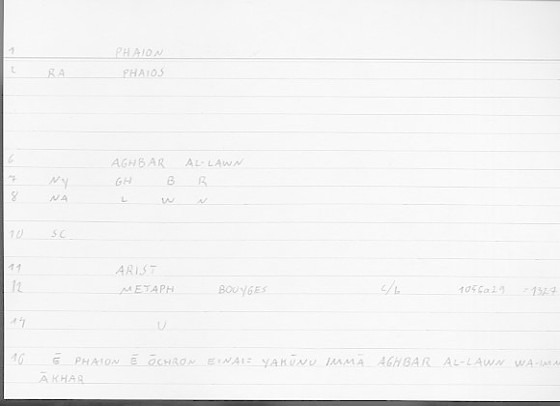 1 PHAION
2 RA PHAIOS
6 AGHBAR AL-LAWN
7 NY GH B R
8 NA L W N
10 SC
11 ARIST
12 METAPH BOUYGES c/b 1056a29 =1327
14 U
16 Ē PHAION Ē ŌCHRON EINAI: YAKŪNU IMMĀ AGHBAR AL-LAWN
ĀKHAR